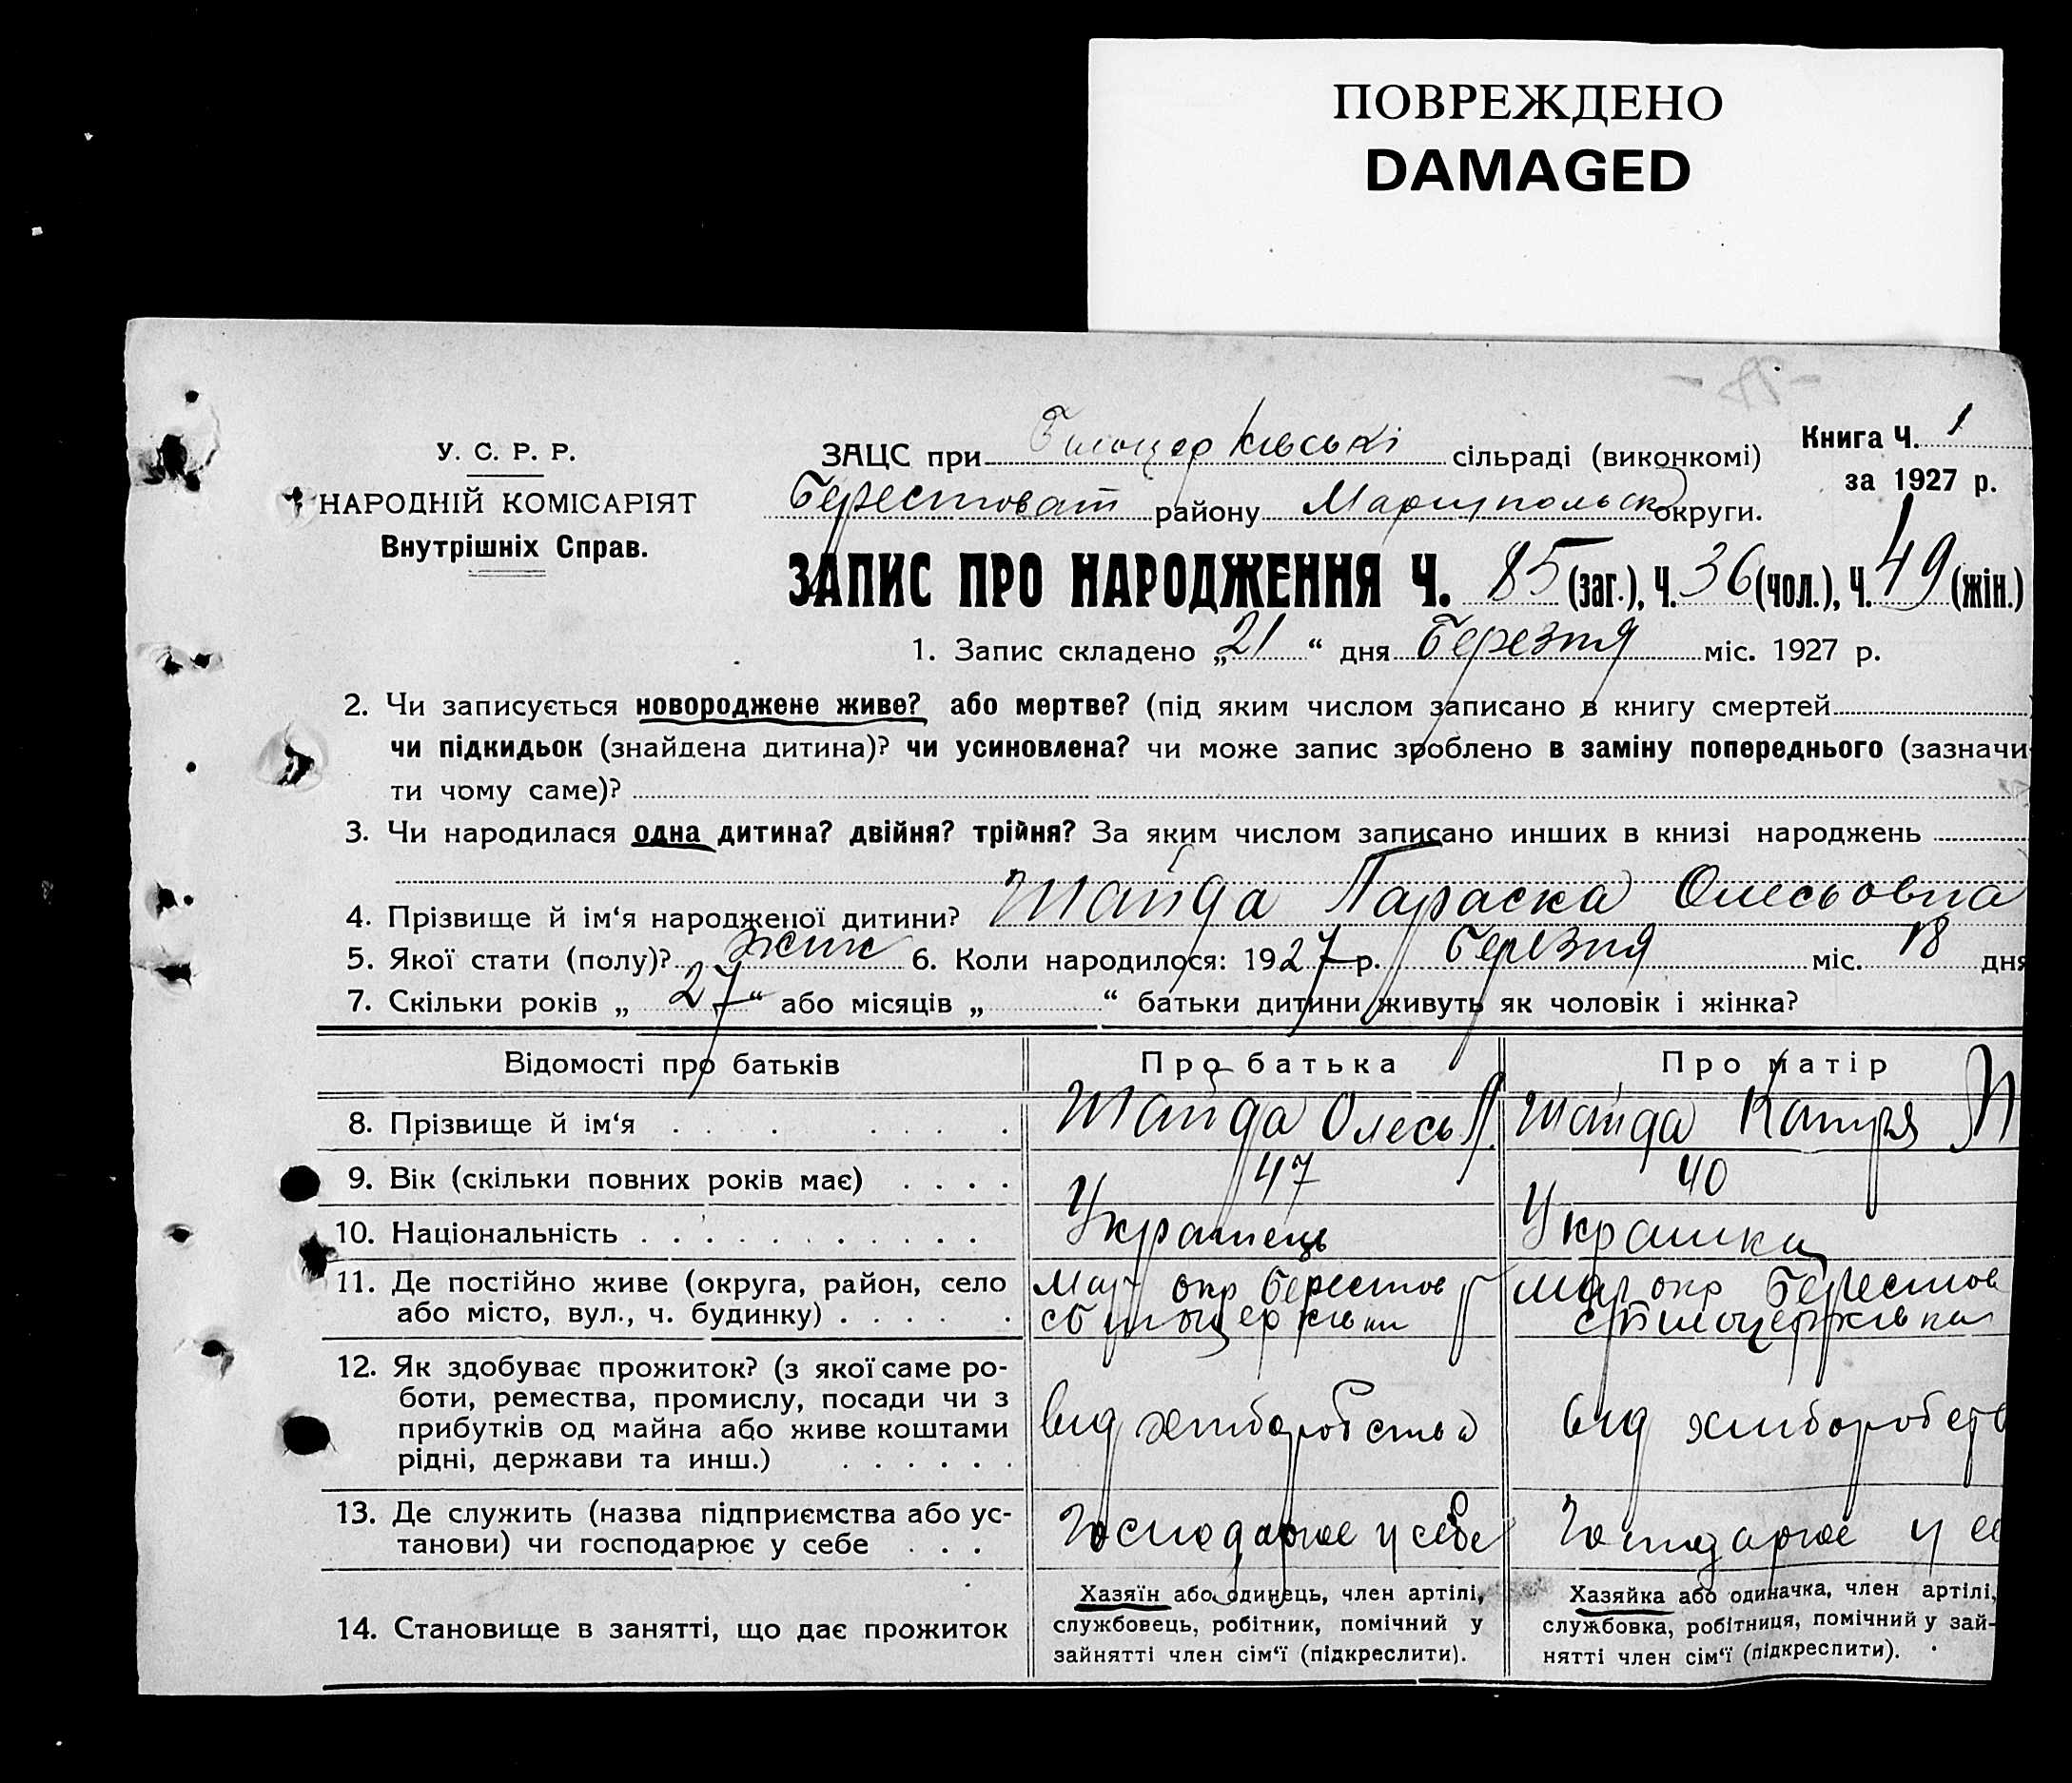 ПОВРЕЖДЕНО
DAMAGED
У. С. Р. Р.
НАРОДНІЙ КОМІСАРІЯТ
Внутрішніх Справ.
ЗАЦС при Білоцерківські сільраді (виконкомі)
Берестоват району Маріупольськ округи.
Книга Ч. 1
за 1927 р.
ЗАПИС ПРО НАРОДЖЕННЯ Ч. 85 (заг.), Ч. 36 (чол.), Ч. 49 (жін.)
1. Запис складено „21“ дня Березня міс. 1927 р.
2. Чи записується новороджене живе? або мертве? (під яким числом записано в книгу смертей
чи підкидьок (знайдена дитина)? чи усиновлена? чи може запис зроблено в заміну попереднього (зазначи-
ти чому саме)?
3. Чи народилася одна дитина? двійня? трійня? За яким числом записано инших в книзі народжень
4. Прізвище й ім‘я народженої дитини? Шайда Параска Олесьовна
5. Якої стати (полу)? жін 6. Коли народилося: 1927 р. Березня міс. 18 дня
7. Скільки років „27“ або місяців „ “ батьки дитини живуть як чоловік і жінка?
Відомості про батьків Про батька Про матір
8. Прізвище й ім‘я Шайда Олесь П. Шайда Катря П
9. Вік (скільки повних років має) 47 40
10. Національність Українець Українка
11. Де постійно живе (округа, район, село Мар окр Берестов р Мар окр Берестов
або місто, вул., ч. будинку) с Білоцерківки с Білоцерківка
12. Як здобуває прожиток? (з якої саме ро-
боти, ремества, промислу, посади чи з від хліборобства від хлиборобств
прибутків од майна або живе коштами
рідні, держави та инш.)
13. Де служить (назва підприємства або ус- Господарює у себе Господарює у се
танови) чи господарює у себе
14. Становище в занятті, що дає прожиток
Хазяїн або одинець, член артілі,
службовець, робітник, помічний у
зайнятті член сім‘ї (підкреслити).
Хазяйка або одиначка, член артілі,
службовка, робітниця, помічний у зай-
нятті член сім‘ї (підкреслити).